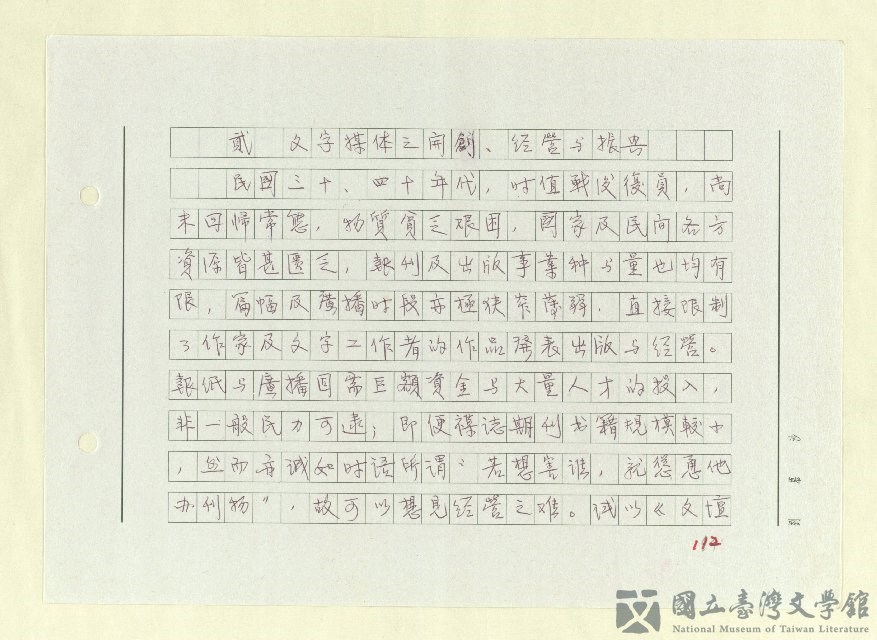 貳 文字媒体之開創、经营与振興
民國三十、四十年代，时值戰後復員，尚
未回歸常態，物質貧乏艰困，國家及民间各方
資源皆甚匱乏，報刊及出版事業种与量也均有
限，篇幅及廣播时段亦極狹窄薄弱，直接限制
了作家及文字工作者的作品發表出版与经营。
報纸与廣播因需巨額資金与大量人才的投入，
非一般民力可逮；即便襍誌期刊书籍規模較小
，然而亦诚如时语所谓〝若想害谁，就慫恿他
办刊物〞，故可以想見经营之难。试以《文壇
112
國立臺灣文學館
National Museum of Taiwan Literature